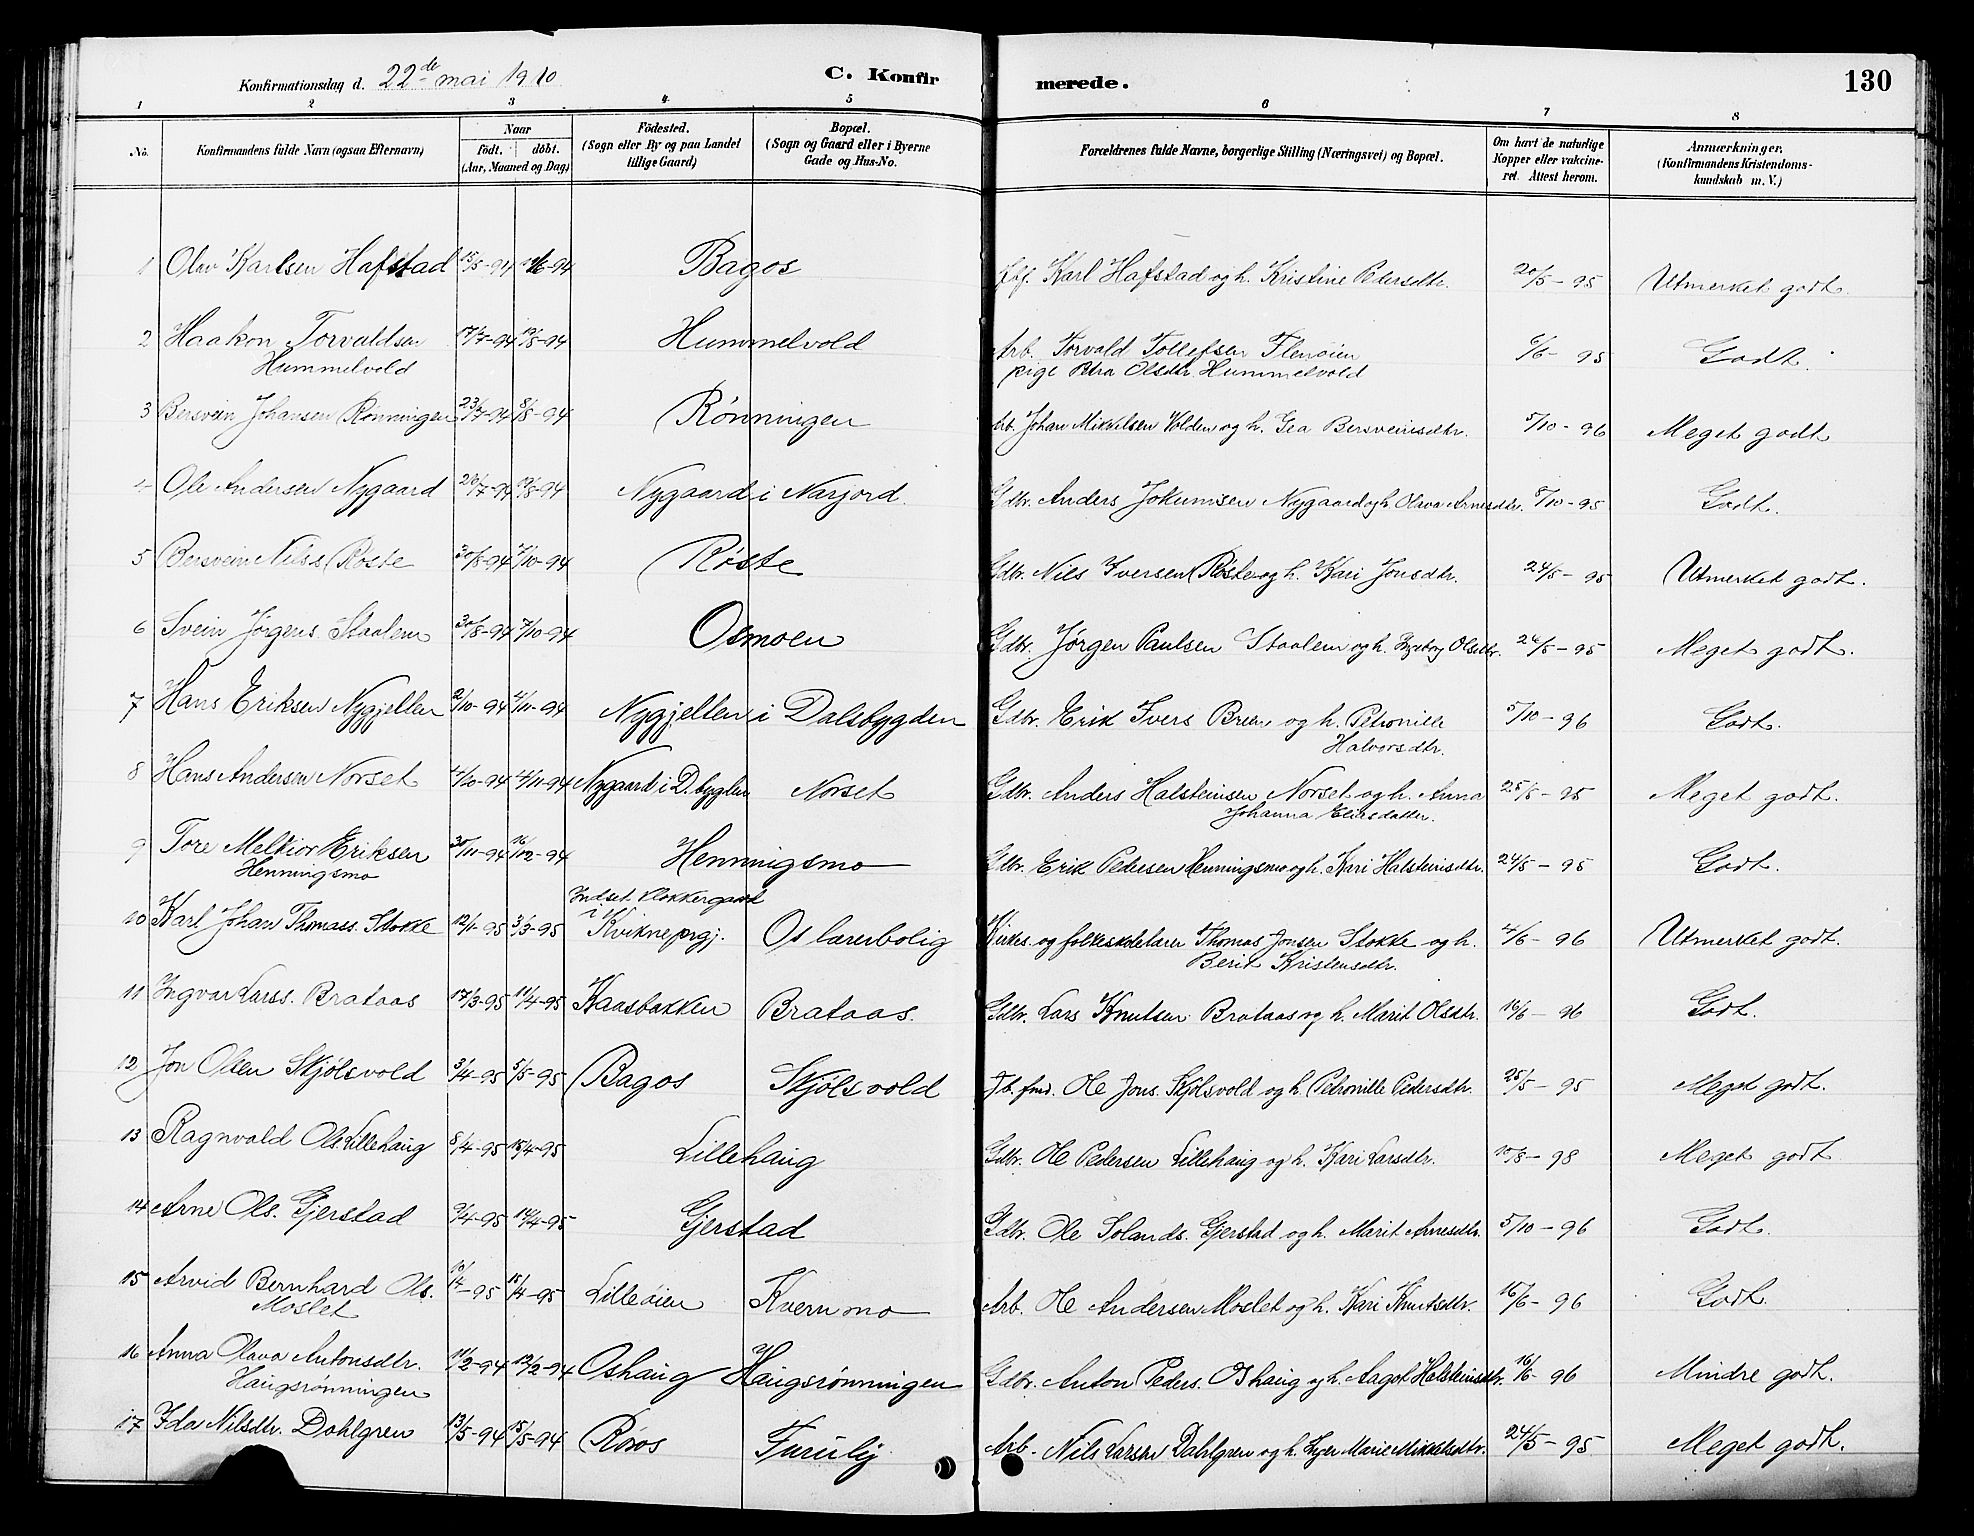 Konfirmationsdag d. 22de mai 1910
C. Konfir merede. 130
1 2 3 4 5 6 7 8
No. Konfirmandens fulde Navn (ogsaa Efternavn) Naar født. døbt. (Aar, Maaned og Dag) Födested. (Sogn eller By og paa Landet tillige Gaard) Bopæl. (Sogn og Gaard eller i Byerne Gade og Hus-No. Forældrenes fulde Navne, borgerlige Stilling (Næringsvei) og Bopæl. Om havt de naturlige Kopper eller vakcineret. Attest herom. Anmærkninger, (Konfirmandens Kristendomskundskab m. V.)
1 Olav Karlsen Hafstad 15/5-94 Bagos Karl Hafstad og h. Kristine Pedersdtr. 20/5-95 Utmerket godt.
2 Haakon Torvaldsen 17/7-94 19/8-94 Hummelvold Arb. Torvald Tollefsen Flenøien 6/6-95 Godt.
Hummelvold pige Petra Olsdtr. Hummelvold
3 Bersvein Johansen Rønningen 23/7-94 8/8-94 Rønningen Arb. Johan Mikkelsen Volden og h. Gea Bersveinsdtr. 5/10-96 Meget godt
4 Ole Andersen Nygaard 19/8-94 Nygaard i Narjord. Gdbr. Anders Jokumsen Nygaard og h. Olava Arnesdtr. 5/10-95 Godt.
5 Bersvein Nilss Røste 30/8-94 7/10-94 Røste Gdbr. Nils Iversen Røste og h. Kari Jonsdtr. 24/5-95 Utmerket godt.
6 Svein Jørgens. Staalem 30/8-94 7/10-94 Osmoen Gdbr. Jørgen Paulsen Staalem og h. Ingeborg Olsdtr. 24/5-95 Meget godt.
7 Hans Eriksen Nygjelten 2/10-94 4/11-94 Nygjelten i Dalsbygden Gdbr. Erik Ivers Breen og h. Petronille 5/10-96 Godt.
Halvorsdtr.
8 Hans Andersen Norset 4/10-94 4/11-94 Nygaard i D.bygden Norset Gdbr. Anders Halsteinsen Norset og h. Anna 25/5-95 Meget godt.
Johanna
9 Tore Melkior Eriksen 30/11-94 16/12-94 Henningsmo Gdbr. Erik Pedersen Henningsmo og h. Kari Halsteinsdtr. 24/5-95 Godt.
Henningsmo
Indset Klokkergaard
10 Karl Johan Thomass. Stokke 12/1-95 3/3-95 i Kvikne prgj. Os lærerbolig Kirkes. og folkeskolelærer Thomas Jonsen Stokke og h. 4/6-96 Utmerket godt.
Berit Kristensdtr.
11 Ingvar Larss. Brataas 17/3-95 11/4-95 Kaasbakken Brataas. Gdbr. Lars Knutsen Brataas og h. Marit Olsdtr. 16/6-96 Godt.
12 Jon Olsen Skjølsvold 3/4-95 5/5-95 Bagos Skjølsvold Jb. fmd. Ole Jons. Skjølsvold og h. Petronille Pedersdtr. 25/5-95 Meget godt.
13 Ragnvald Ols. Lillehaug 8/4-95 15/4-95 Lillehaug Gdbr. Ole Pedersen Lillehaug og h. Kari Larsdtr. 10/8-98 Meget godt
14 Arne Ols. Gjerstad 9/4-95 14/4-95 Gjerstad Gdbr. Ole Gjerstad og h. Marit Arnesdtr. 5/10-96 Godt.
15 Arvid Bernhard Ols. 10/4-95 15/4-95 Lilleøien Kvernmo Arb. Ole Andersen Moslet og h. Kari Knutsdtr. 16/6-96 Godt.
Moslet
16 Anna Olava Antonsdtr. 11/2-94 12/2-94 Oshaug Haugsrønningen Gdbr. Anton Peders. Oshaug og h. Aagot Halsteinsdtr. 16/6-96 Mindre godt.
Haugsrønningen
17 Ida Nilsdtr. Dahlgren 13/5-94 15/5-94 Røros Furulij. Arb. Nils Larsen Dahlgren og h. Marie Mikkelsdtr. 24/5-95 Meget godt.